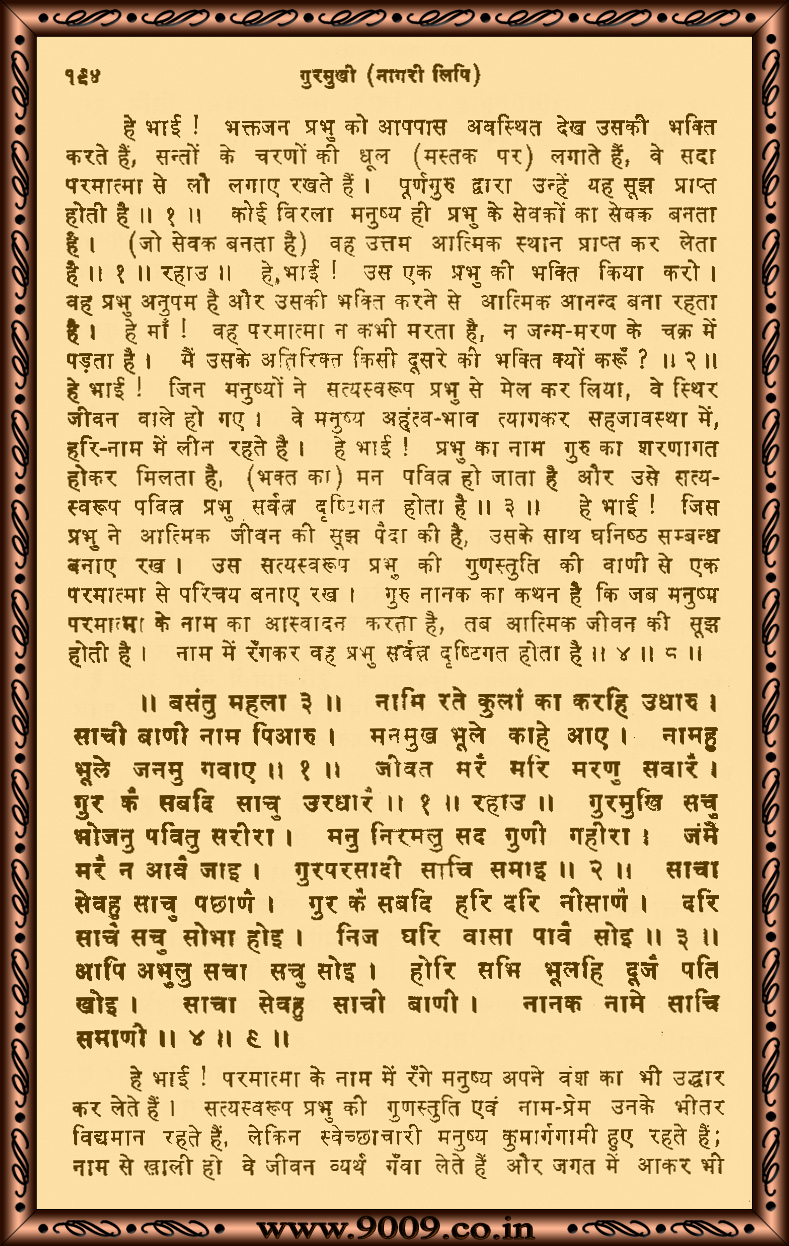 १९४ गुरमुखी (नागरी लिपि)
हे भाई ! भक्तजन प्रभु को आपपास अवस्थित देख उसकी भक्ति
करते हैं, सन्तों के चरणों की धूल (मस्तक पर) लगाते हैं, वे सदा
परमात्मा से लौ लगाए रखते हैं । पूर्णगुरु द्वारा उन्हें यह सूझ प्राप्त
होती है ॥ १ ॥ कोई विरला मनुष्य ही प्रभु के सेवकों का सेवक बनता
है । (जो सेवक बनता है) वह उत्तम आत्मिक स्थान प्राप्त कर लेता
है ॥ १ ॥ रहाउ ॥ हे भाई ! उस एक प्रभु की भक्ति किया करो ।
वह प्रभु अनुपम है और उसकी भक्ति करने से आत्मिक आनन्द बना रहता
है । हे माँ ! वह परमात्मा न कभी मरता है, न जन्म-मरण के चक्र में
पड़ता है । मैं उसके अतिरिक्त किसी दूसरे की भक्ति क्यों करूँ ? ॥ २ ॥
हे भाई ! जिन मनुष्यों ने सत्यस्वरूप प्रभु से मेल कर लिया, वे स्थिर
जीवन वाले हो गए । वे मनुष्य अहंत्व-भाव त्यागकर सहजावस्था में,
हरि-नाम में लीन रहते है । हे भाई ! प्रभु का नाम गुरु का शरणागत
होकर मिलता है, (भक्त का) मन पवित्र हो जाता है और उसे सत्य-
स्वरूप पवित्र प्रभु सर्वत्र दृष्टिगत होता है ॥ ३ ॥ हे भाई ! जिस
प्रभु ने आत्मिक जीवन की सूझ पैदा की है, उसके साथ घनिष्ठ सम्बन्ध
बनाए रख । उस सत्यस्वरूप प्रभु की गुणस्तुति की वाणी से एक
परमात्मा से परिचय बनाए रख । गुरु नानक का कथन है कि जब मनुष्य
परमात्मा के नाम का आस्वादन करता है, तब आत्मिक जीवन की सूझ
होती है । नाम में रँगकर वह प्रभु सर्वत्र दृष्टिगत होता है ॥ ४ ॥ ८ ॥
॥ बसंतु महला ३ ॥ नामि रते कुलां का करहि उधारु ।
साची बाणी नाम पिआरु । मनमुख भूले काहे आए । नामहु
भूले जनमु गवाए ॥ १ ॥ जीवत मरै मरि मरणु सवारै ।
गुर कै सबदि साचु उरधारै ॥ १ ॥ रहाउ ॥ गुरमुखि सचु
भोजनु पवितु सरीरा । मनु निरमलु सद गुणी गहीरा । जंमै
मरै न आवै जाइ । गुरपरसादी साचि समाइ ॥ २ ॥ साचा
सेवहु साचु पछाणै । गुर कै सबदि हरि दरि नीसाणै । दरि
साचै सचु सोभा होइ । निज घरि वासा पावै सोइ ॥ ३ ॥
आपि अभुलु सचा सचु सोइ । होरि सभि भूलहि दूजै पति
खोइ । साचा सेवहु साची बाणी । नानक नामे साचि
समाणी ॥ ४ ॥ ९ ॥
हे भाई ! परमात्मा के नाम में रँगे मनुष्य अपने वंश का भी उद्धार
कर लेते हैं । सत्यस्वरूप प्रभु की गुणस्तुति एवं नाम-प्रेम उनके भीतर
विद्यमान रहते हैं, लेकिन स्वेच्छाचारी मनुष्य कुमार्गगामी हुए रहते हैं;
नाम से खाली हो वे जीवन व्यर्थ गँवा लेते हैं और जगत में आकर भी
www.9009.co.in